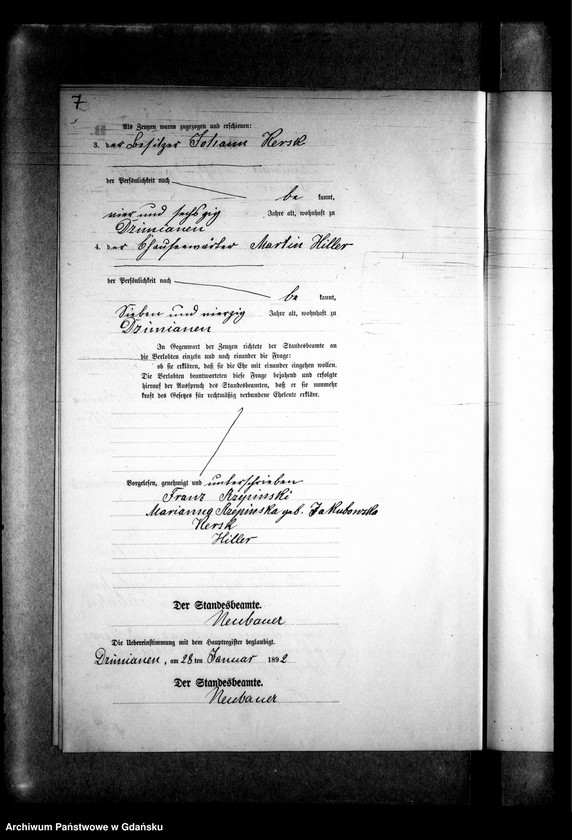 7
Als Zeugen waren zugezogen und erschienen:
3. der Besitzer Johann Kersk
der Persönlichkeit nach
be kannt,
vier und sechszig Jahre alt, wohnhaft zu
Dzimianen
4. der Chauseewärter Martin Hiller
der Persönlichkeit nach
be kannt,
Sieben und vierzig Jahre alt, wohnhaft zu
Dzimianen
In Gegenwart der Zeugen richtete der Standesbeamte an
die Verlobten einzeln und nach einander die Frage:
ob sie erklären, daß sie die Ehe mit einander eingehen wollen.
Die Verlobten beantworteten diese Frage bejahend und erfolgte
hierauf der Ausspruch des Standesbeamten, daß er sie nunmehr
kraft des Gesetzes für rechtmäßig verbundene Eheleute erkläre.
Vorgelesen, genehmigt und unterschrieben
Franz Rzepinski
Marianna Rzepinska geb. Jakubowska
Kersk
Hiller
Der Standesbeamte.
Neubauer
Die Uebereinstimmung mit dem Hauptregister beglaubigt.
Dzimianen, am 28 ten Januar 1892
Der Standesbeamte.
Neubauer
Archiwum Państwowe w Gdańsku